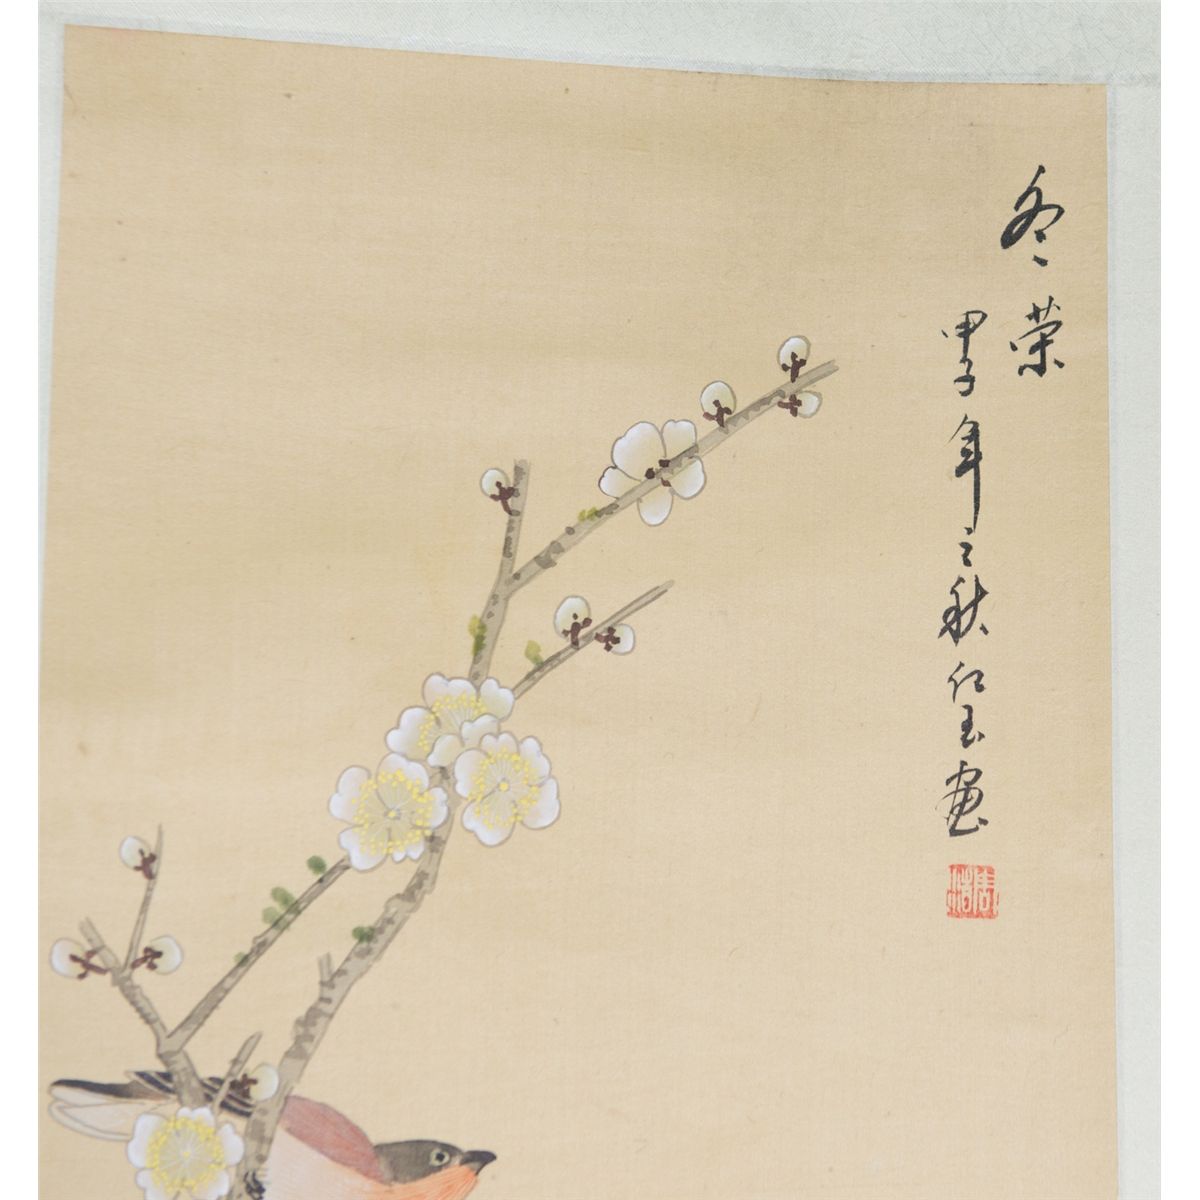 冬荣
甲子年之秋仁玉画